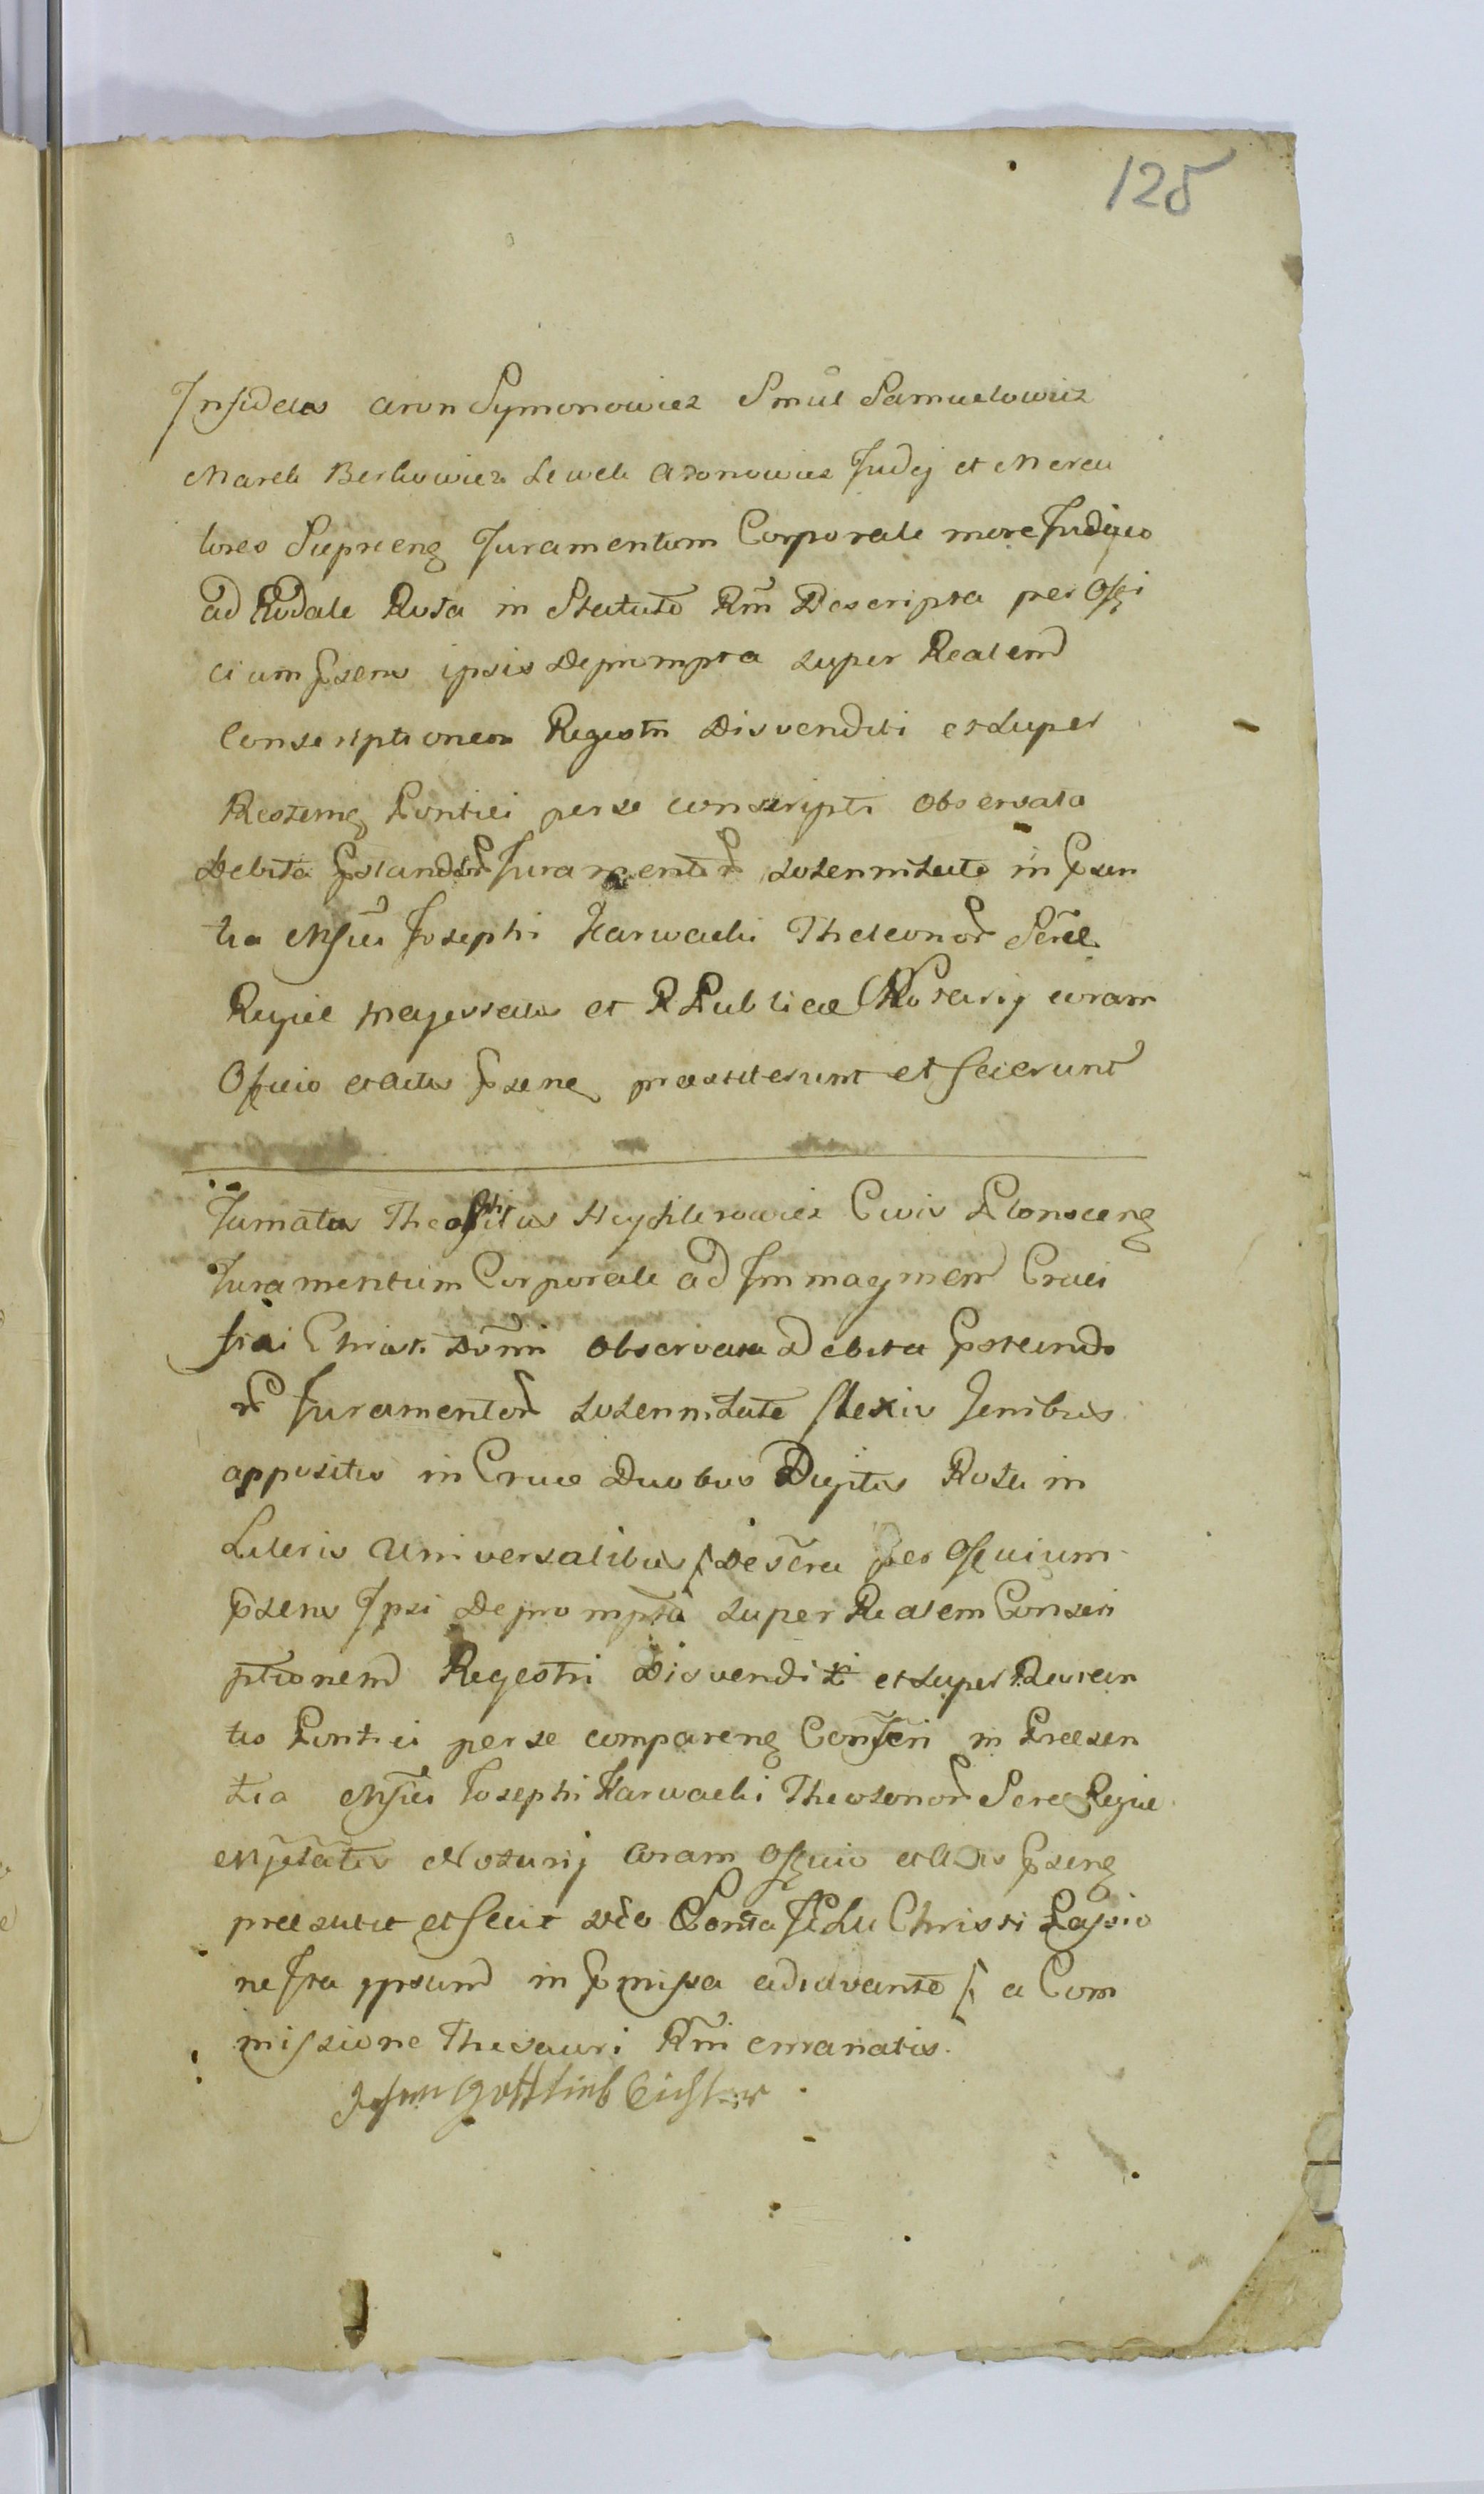 125
Infideles Aron Symonowicz Smul Samuelowicz
Marek Berkowicz Lewek Aronowicz Judej et Merca
tores Supreng Juramentum Corporale more Judaico
ad Rodale Rota in Statuto Rni Descripta per Offi
cium psens ipsis Deprompta super Realem
Conscriptionem Regestri Disvenditi et super
Restemg Pontici per se conscripti observata
Debita pstandor Juramentor solennitate in psen
tia Mfici Josephi Karwacki Theleonor Sere
Regiae Majestatis et RPublicae Notarij coram
Officio et actis pseng praestiterunt et fecerunt
Famatus Theofilus Heychlerowicz Civis Plonsceng
Juramentum Corporale ad Immaginem Cruci
fixi Christi Domi observata Debita pstando
r Juramentor solennitate flexis Jenibus
appositis in Cruce Duobus Digitis Rota in
Literis Universalibus /: Descra per Officium
psens Ipsi Deprompta super Realem Conscri
ptionem Regestri Disvenditi et super Remain
tis Pontici per se compareng Conscri in Praesen
tia Mfici Josephi Karwacki Theolonor Sere Regiae
Mjestatis Notarij Coram Officio et Actis pseng
praestitit et fecit Sictio Porrta Jesu Christi Passio
ne Ita ipsum in pmissa adiuvante /: a Com
missione Thesauri Rni emanatis.
Johan Gottlieb Eichler